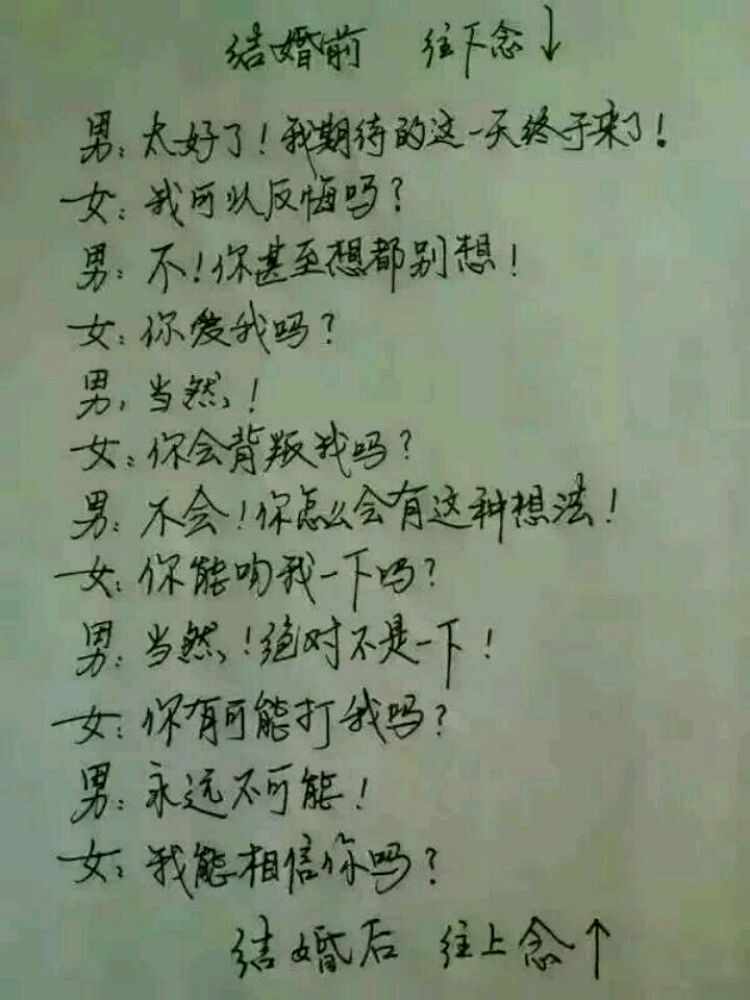 结婚前 往下念↓
男：太好了！我期待的这一天终于来了！
女：我可以反悔吗？
男：不！你甚至想都别想！
女：你爱我吗？
男：当然！
女：你会背叛我吗？
男：不会！你怎么会有这种想法！
女：你能吻我一下吗？
男：当然！绝对不是一下！
女：你有可能打我吗？
男：永远不可能！
女：我能相信你吗？
结婚后 往上念↑